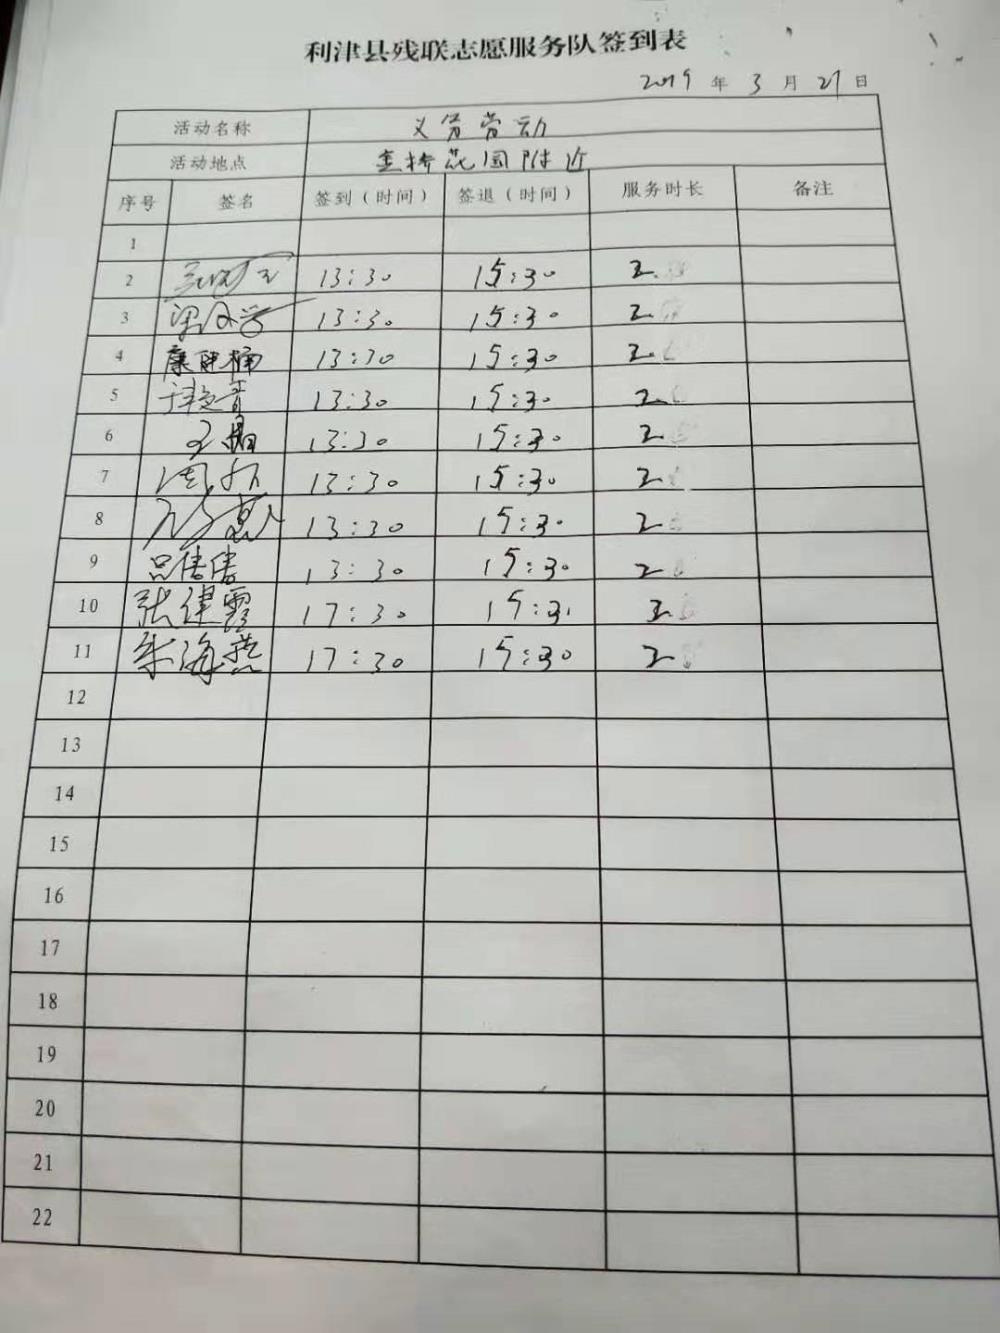 利津县残联志愿服务队签到表
2019 年 3 月 21 日
活动名称 义务劳动
活动地点 金桥花园附近
序号 签名 签到（时间） 签退（时间） 服务时长 备注
1
2 13:30 15:30 2
3 13:30 15:30 2
4 康 楠 13:30 15:30 2
5 13:30 15:30 2
6 王 13:30 15:30 2
7 周 13:30 15:30 2
8 13:30 15:30 2
9 吕倩倩 13:30 15:30 2
10 张建霞 17:30 15:31 2
11 朱海燕 17:30 15:30 2
12
13
14
15
16
17
18
19
20
21
22